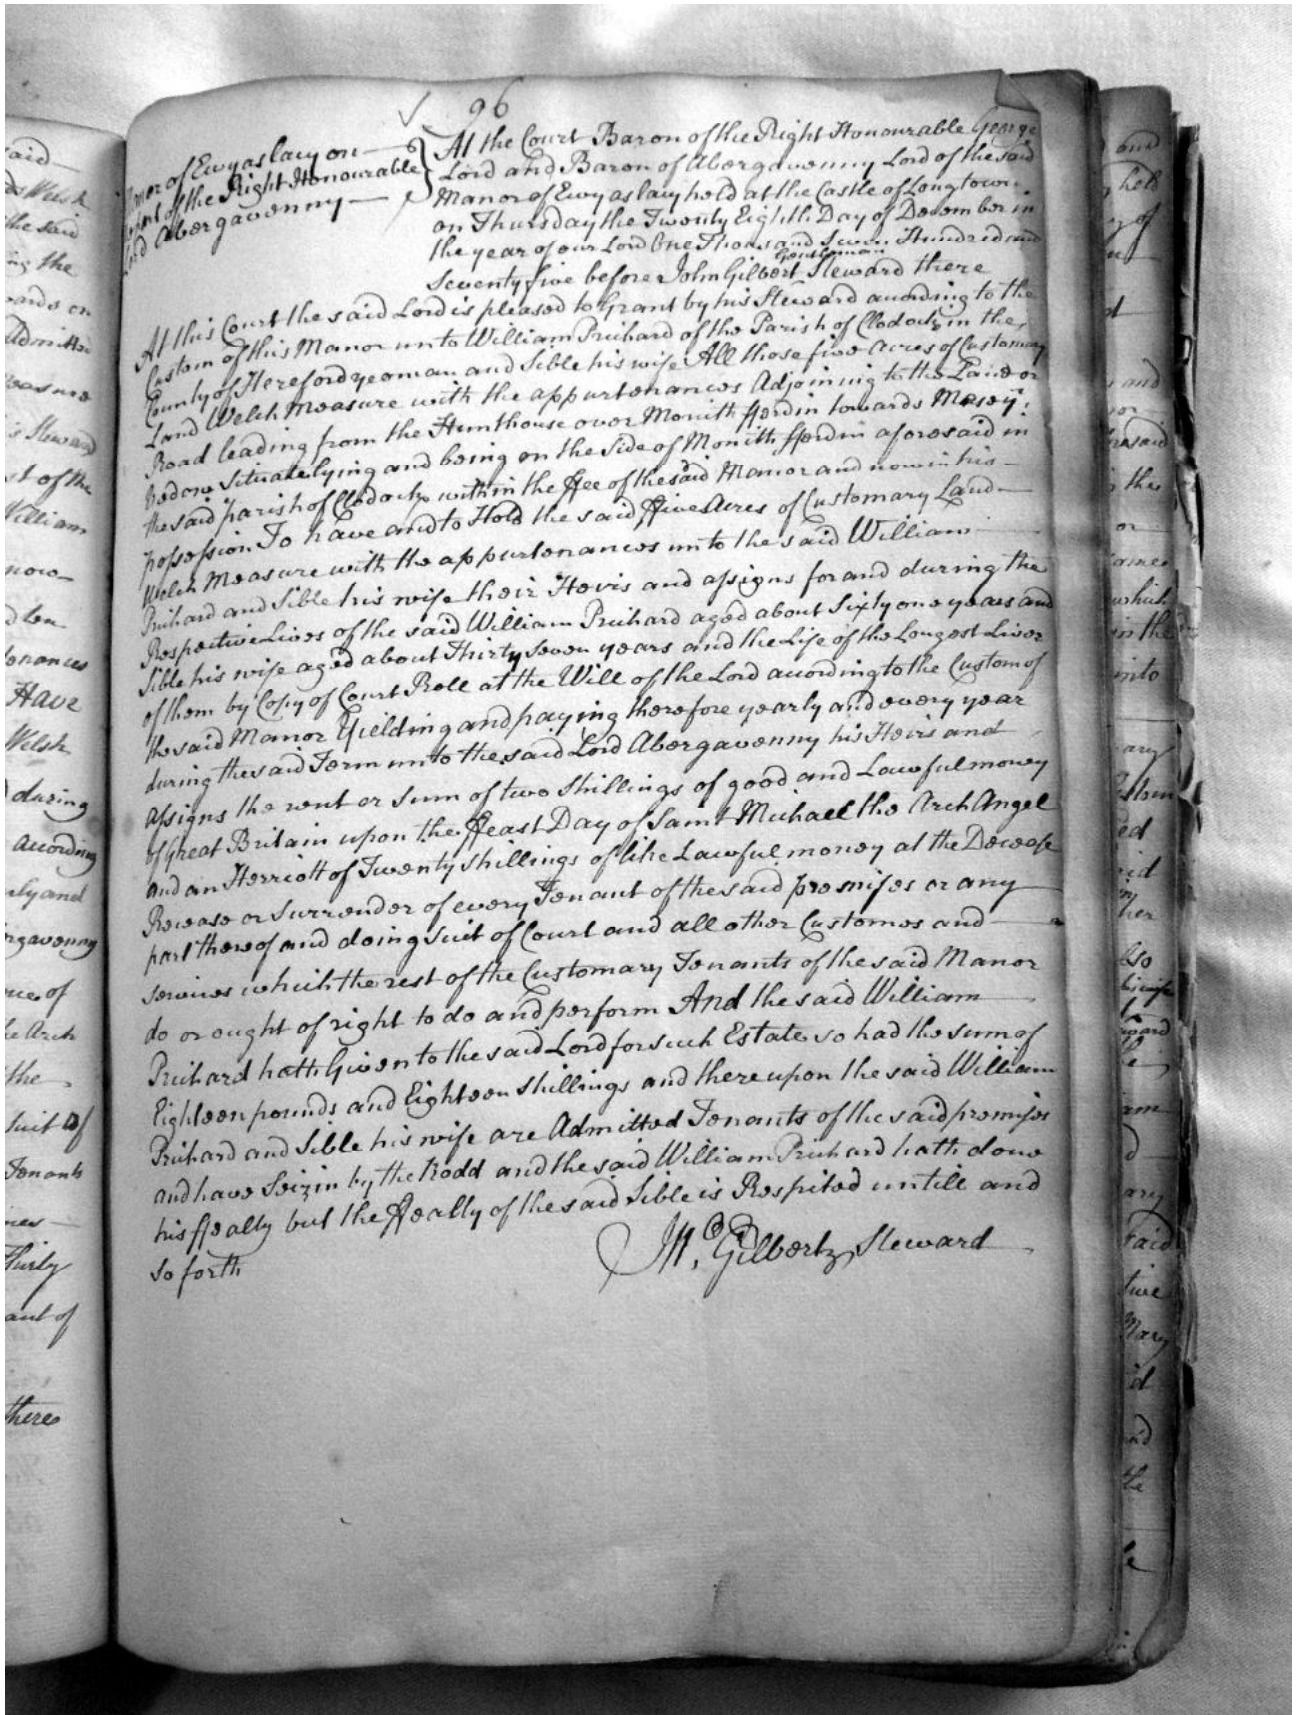 96
Manor of Ewyaslacy on
part of the Right Honourable
Lord Abergavenny
At the Court Baron of the Right Honourable George
Lord and Baron of Abergavenny Lord of the said
Manor of Ewyaslacy held at the Castle of Longtown
on Thursday the Twenty Eighth Day of December in
the year of our Lord One Thousand Seven Hundred and
Gentleman
Seventy five before John Gilbert Steward there
At this Court the said Lord is pleased to Grant by his Steward according to the
Custom of this Manor unto William Prichard of the Parish of Clodock in the
County of Hereford yeoman and Sible his wife All those five Acres of Customary
Land Welch Measure with the appurtenances Adjoining to the Lane or
Road leading from the Hunthouse over Monith fferdin towards
Situate lying and being on the Side of Monith fferdin aforesaid in
the said parish of Clodock within the ffee of the said Manor and now in his
possession To have and to Hold the said ffive Acres of Customary Land
Welch Measure with the appurtenances unto the said William
Prichard and Sible his wife their Heirs and assigns for and during the
Respective Lives of the said William Prichard aged about Sixty one years and
Sible his wife aged about Thirty Seven years and the Life of the Longest Liver
of them by Copy of Court Roll at the Will of the Lord according to the Custom of
the said Manor Yielding and paying therefore yearly and every year
during the said Term unto the said Lord Abergavenny his Heirs and
assigns the rent or Sum of two Shillings of good and Lawful money
of Great Britain upon the ffeast Day of Saint Michael the Arch Angel
and an Herriott of Twenty shillings of like Lawful money at the Decease
Rewease or Surrender of every Tenant of the said premises or any
part thereof and doing Suit of Court and all other Customes and
services which the rest of the Customary Tenants of the said Manor
do or ought of right to do and perform And the said William
Prichard hath Given to the said Lord for such Estate so had the sum of
Eighteen pounds and Eighteen shillings and thereupon the said William
Prichard and Sible his wife are Admitted Tenants of the said premises
and have Seizin by the Rodd and the said William Prichard hath done
his ffealty but the ffealty of the said Sible is Respited untill and
so forth
Jn.º Gilbert, Steward